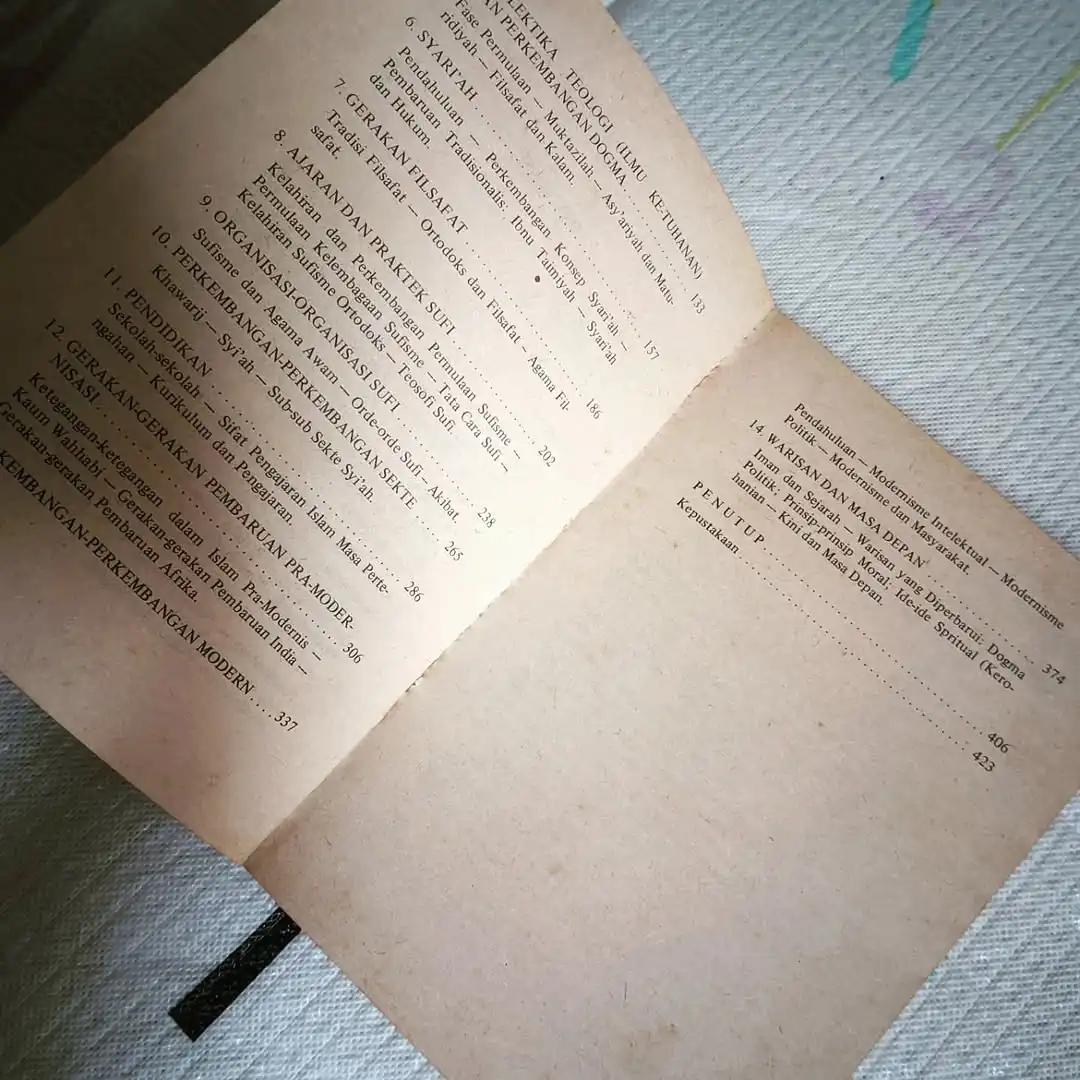 LEKTIKA TEOLOGI (ILMU KE-TUHANAN)
AN PERKEMBANGAN DOGMA . . . . . . . . . 133
Fase Permulaan — Muktazilah — Asy'ariyah dan Matu-
ridiyah — Filsafat dan Kalam.
6. SYARI'AH . . . . . . . . . . . . . . . . . . . . 157
Pendahuluan — Perkembangan Konsep Syari'ah —
Pembaruan Tradisionalis; Ibnu Taimiyah — Syari'ah
dan Hukum.
7. GERAKAN FILSAFAT . . . . . . . . . . . . . . . 186
Tradisi Filsafat — Ortodoks dan Filsafat — Agama Fil-
safat.
8. AJARAN DAN PRAKTEK SUFI . . . . . . . . . . 202
Kelahiran dan Perkembangan Permulaan Sufisme —
Permulaan Kelembagaan Sufisme — Tata Cara Sufi —
Kelahiran Sufisme Ortodoks — Teosofi Sufi.
9. ORGANISASI-ORGANISASI SUFI . . . . . . . . . 238
Sufisme dan Agama Awam — Orde-orde Sufi — Akibat.
10. PERKEMBANGAN-PERKEMBANGAN SEKTE . . . . 265
Khawarij — Syi'ah — Sub-sub Sekte Syi'ah.
11. PENDIDIKAN . . . . . . . . . . . . . . . . . . 286
Sekolah-sekolah — Sifat Pengajaran Islam Masa Perte-
ngahan — Kurikulum dan Pengajaran.
12. GERAKAN-GERAKAN PEMBARUAN PRA-MODER-
NISASI . . . . . . . . . . . . . . . . . . . . . . 306
Ketegangan-ketegangan dalam Islam Pra-Modernis —
Kaum Wahhabi — Gerakan-gerakan Pembaruan India —
Gerakan-gerakan Pembaruan Afrika
KEMBANGAN-PERKEMBANGAN MODERN . . . . 337
Pendahuluan — Modernisme Intelektual — Modernisme
Politik — Modernisme dan Masyarakat.
14. WARISAN DAN MASA DEPAN . . . . . . . . . . 374
Iman dan Sejarah — Warisan yang Diperbarui; Dogma
Politik; Prinsip-prinsip Moral; Ide-ide Spritual (Kero-
hanian — Kini dan Masa Depan.
P E N U T U P . . . . . . . . . . . . . . . . . . 406
Kepustakaan . . . . . . . . . . . . . . . . . . . 423